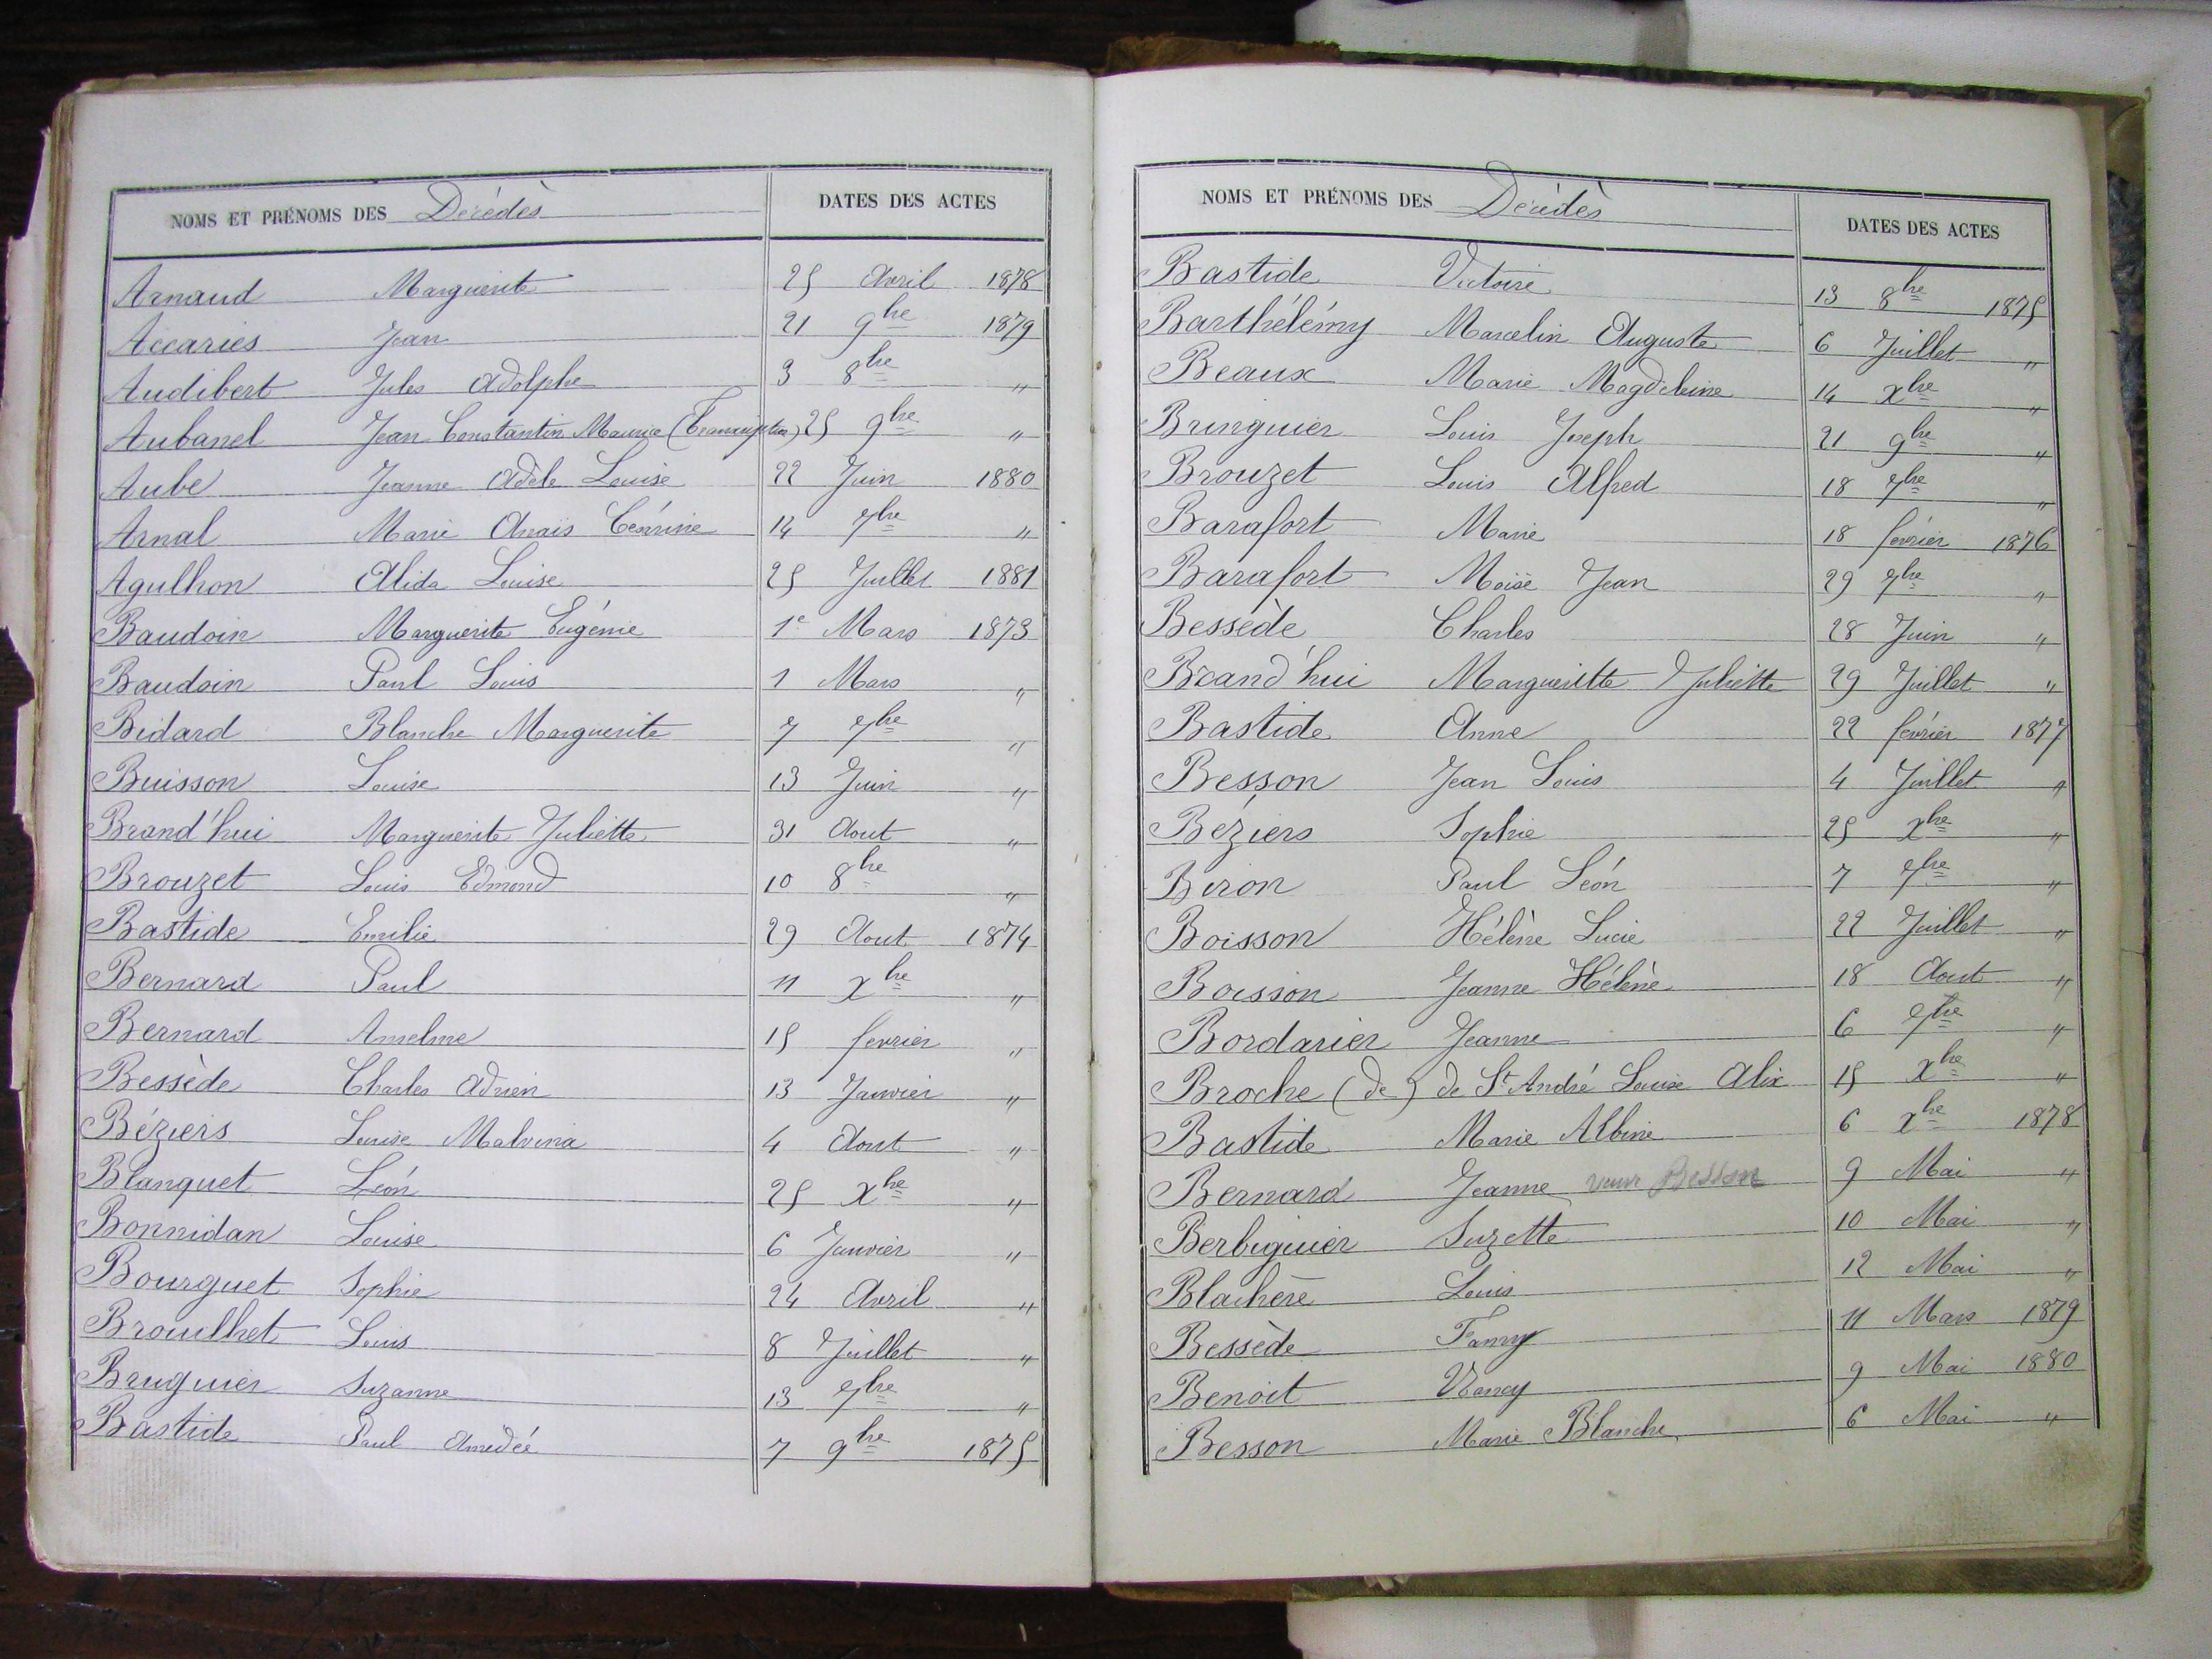 NOMS ET PRÉNOMS DES Décédés DATES DES ACTES
Arnaud Marguerite 25 Avril 1878
Accariès Jean 21 9bre 1879
Audibert Jules Adolphe 3 8bre "
Aubanel Jean Constantin Maurice (Transcription) 25 9bre "
Aube Jeanne Adèle Louise 22 Juin 1880
Arnal Marie Anaïs Cézarine 14 7bre "
Agulhon Alida Louise 25 Juillet 1881
Baudoin Marguerite Eugénie 1e Mars 1873
Baudoin Paul Louis 1 Mars "
Bidard Blanche Marguerite 7 7bre "
Buisson Louise 13 Juin "
Brand'hui Marguerite Juliette 31 Aout "
Brouzet Louis Edmond 10 8bre "
Bastide Emilie 29 Aout 1874
Bernard Paul 11 Xbre "
Bernard Anselme 15 fevrier "
Bessède Charles Adrien 13 Janvier "
Béziers Louise Malvina 4 Aout "
Blanquet Léon 25 Xbre "
Bonnidan Louise 6 Janvier "
Bourguet Sophie 24 Avril "
Brouilhet Louis 8 Juillet "
Bruguier Suzanne 13 7bre "
Bastide Paul Amédée 7 9bre 1875
NOMS ET PRÉNOMS DES Décédés DATES DES ACTES
Bastide Victoire 13 8bre 1875
Barthélémy Marcelin Auguste 6 Juillet "
Beaux Marie Magdeleine 14 Xbre "
Bringuier Louis Joseph 21 9bre "
Brouzet Louis Alfred 18 7bre "
Barafort Marie 18 février 1876
Barafort Moïse Jean 29 7bre "
Bessède Charles 28 Juin "
Brand'hui Margueritte Juliette 29 Juillet "
Bastide Anne 22 février 1877
Besson Jean Louis 4 Juillet "
Béziers Sophie 25 Xbre "
Biron Paul Léon 7 7bre "
Boisson Hélène Lucie 22 Juillet "
Boisson Jeanne Hélène 18 Aout "
Bordarier Jeanne 6 7bre "
Broche (de) de St André Louise Alix 15 Xbre "
Bastide Marie Albine 6 Xbre 1878
Bernard Jeanne veuve Besson 9 Mai "
Berbiguier Suzette 10 Mai "
Blachère Louis 12 Mai "
Bessède Fanny 11 Mars 1879
Benoit Nancy 9 Mai 1880
Besson Marie Blanche 6 Mai "